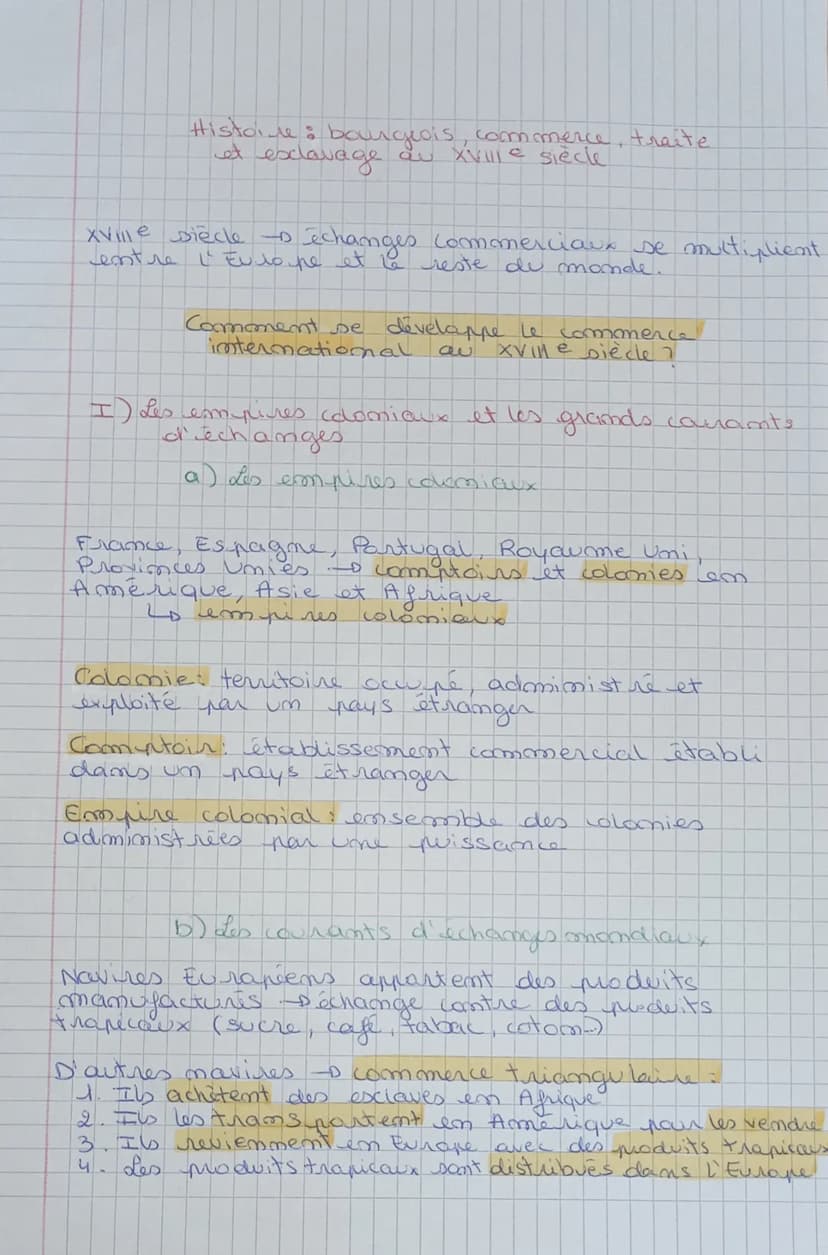 Histoire : bourgeois, commerce, traite
et esclavage au XVIIIe siècle
XVIIIe siècle → échanges commerciaux se multiplient
entre l'Europe et le reste du monde.
Comment se développe le commerce
international au XVIIIe siècle ?
I) Les empires coloniaux et les grands courants
d'échanges
a) Les empires coloniaux
France, Espagne, Portugal, Royaume Uni,
Provinces Unies → comptoirs et colonies en
Amérique, Asie et Afrique
↳ empires coloniaux
Colonie : territoire occupé, administré et
exploité par un pays étranger
Comptoir : établissement commercial établi
dans un pays étranger
Empire colonial : ensemble des colonies
administrées par une puissance
b) Les courants d'échanges mondiaux
Navires Européens apportent des produits
manufacturés → échange contre des produits
tropicaux (sucre, café, tabac, coton...)
D'autres navires → commerce triangulaire :
1. Ils achètent des esclaves en Afrique
2. Ils les transportent en Amérique pour les vendre
3. Ils reviennent en Europe avec des produits tropicaux
4. Les produits tropicaux sont distribués dans l'Europe